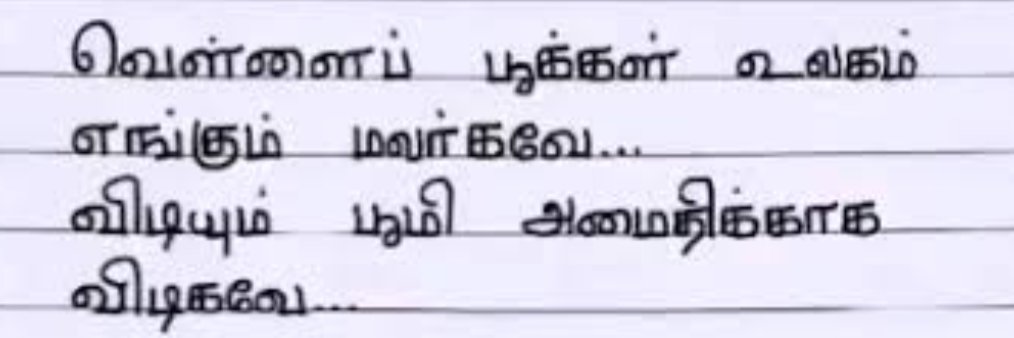 வெள்ளைப் பூக்கள் உலகம்
எங்கும் மலர்கவே...
விடியும் பூமி அமைதிக்காக
விடிகவே...